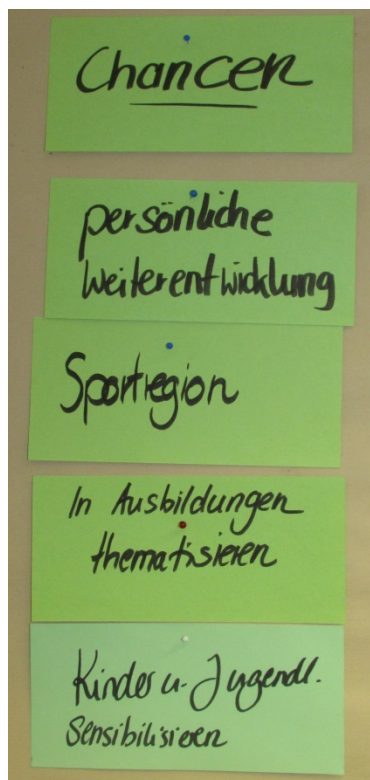 Chancen
persönliche
Weiterentwicklung
Sportregion
In Ausbildungen
thematisieren
Kinder u. Jugendl.
sensibilisieren